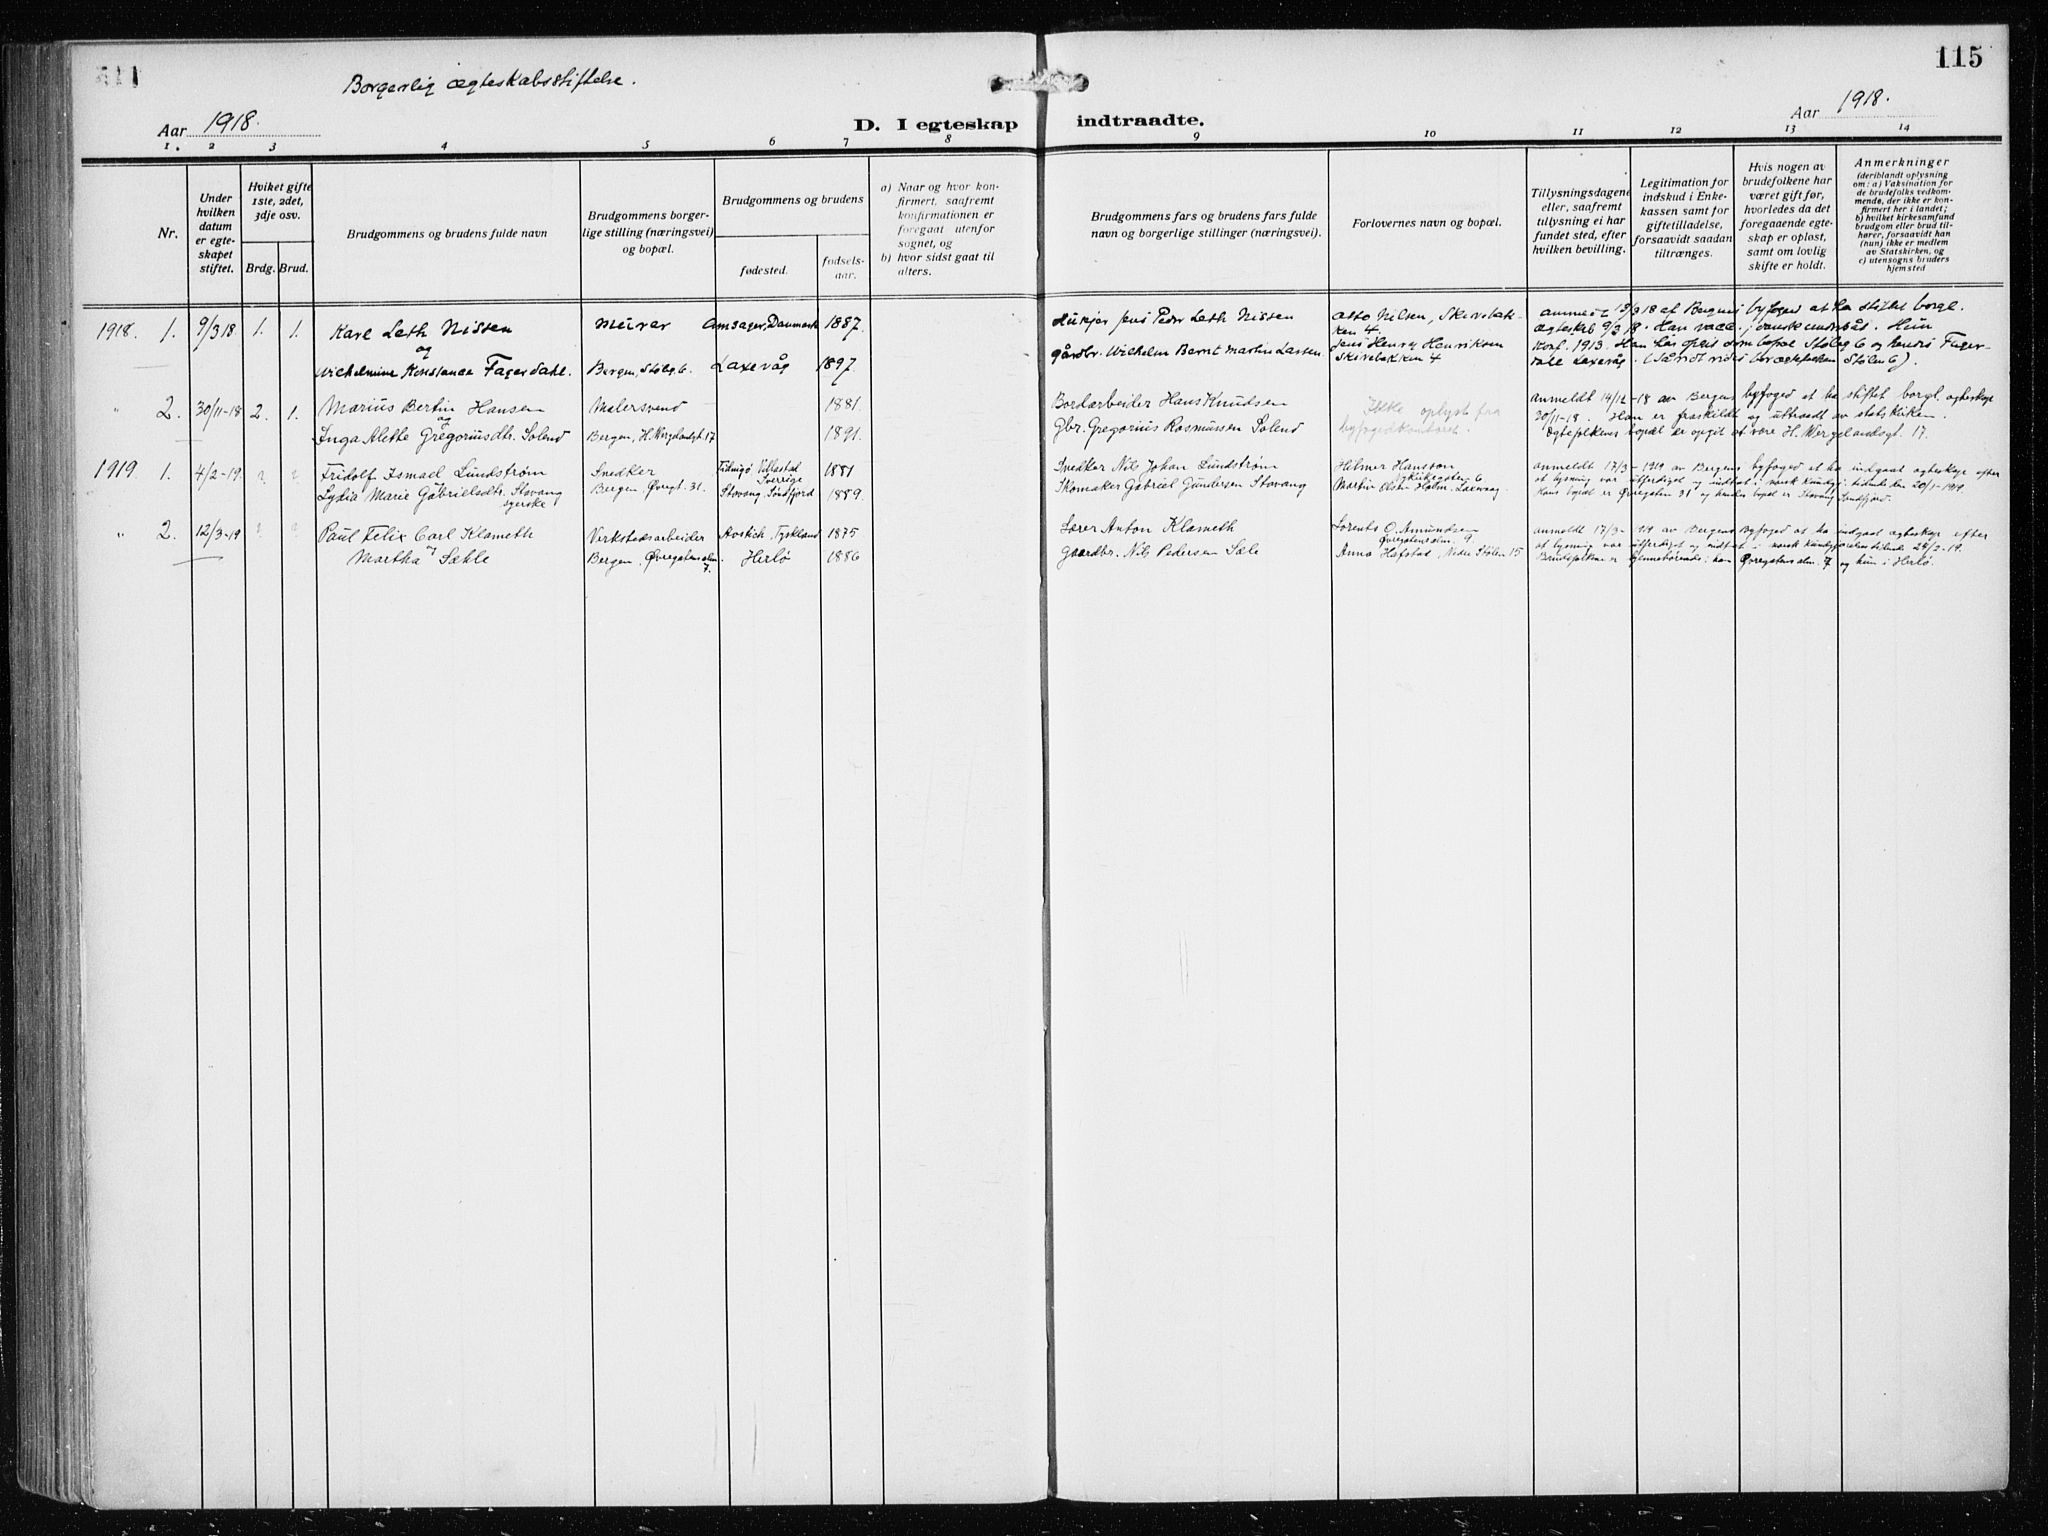 115
Borgerlig ægteskabsstiftelse.
Aar 1918.
D. I egteskap indtraadte.
Aar 1918.
1. 2 3 4 5 6 7 8 9 10 11 12 13 14
Nr.
Under hvilken datum er egteskapet stiftet.
Hviket gifte 1ste, 2det, 3dje osv.
Brdg. Brud.
Brudgommens og brudens fulde navn
Brudgommens borgerlige stilling (næringsvei) og bopæl.
Brudgommens og brudens
fødested.
fødselsaar.
a) Naar og hvor konfirmert, saafremt konfirmationen er foregaat utenfor sognet, og
b) hvor sidst gaat til alters.
Brudgommens fars og brudens fars fulde navn og borgerlige stillinger (næringsvei).
Forlovernes navn og bopæl.
Tillysningsdagene eller, saafremt tillysning ei har fundet sted, efter hvilken bevilling.
Legitimation for indskud i Enkekassen samt for giftetilladelse, forsaavidt saadan tiltrænges.
Hvis nogen av brudefolkene har været gift før, hvorledes da det foregaaende egteskap er opløst, samt om lovlig skifte er holdt.
Anmerkninger
(deriblandt oplysning om: a) Vaksination for de brudefolks vedkommende, der ikke er konfirmert her i landet; b) hvilket kirkesamfund brudgom eller brud tilhører, forsaavidt han (hun) ikke er medlem av Statskirken, og c) utensogns bruders hjemsted
1918. 1. 9/3 18 1. 1. Karl Leth Nissen Murer Ansager, Danmark 1887. Jens Peder Leth Nissen Otto Nilsen,
og
Wilhelmine Konstance Fagerdahl. Bergen, Stølg. 6. Laxevåg 1897. gårdbr. Wilhelm Bernt Martin Larsen Jens Henry Henriksen
" 2. 30/11-18 2. 1. Marius Bertin Hansen Malersvend 1881. Bordarbeider Hans Knudsen Ikke oplyst fra anmeldt 14/12-18 av Bergens byfoged at ha stiftet borgl. ægteskap
og
Inga Alette Gregoriusdtr. Solend Bergen, H. Wergelandsgt 17 1891. Gbr. Gregorius Rasmussen Solend byfogedkontoret. 30/11-18 Han er fraskildt og uttraadt av statskirken.
Ægtefolkenes bopæl er opgit at være H. Wergelandsgt. 17.
1919 1. 4/2-19 ? ? Fridolf Ismael Lundstrøm Snedker Sverige 1881 Snedker Nils Johan Lundstrøm Hilmer Hansson anmeldt 17/3-1919 av Bergens byfoged at ha indgaat ægteskap efter
Lydia Marie Gabrielsdtr. Stavang Bergen, Øvregt. 31. Stavang, Søndfjord 1889. Skomaker Gabriel Gundersen Stavang Martin Olsen Holm, Laxevaag at lysning var utferdiget og indtat i norsk Kundgj. tidende den 20/1-1919.
Hans bopæl er Øvregaten 31 og hendes bopæl er Stavang, Søndfjord.
" 2. 12/3-19 ? ? Paul Felix Carl Klameth Verkstedsarbeider Tyskland 1875 Lærer Anton Klameth Lorents O. Amundsen anmeldt 17/3-1919 av Bergens Byfoged at ha indgaat ægteskap efter
Martha Sæhle Bergen, Øvregatens alm. 7. Herlø 1886 Gaardbr. Nils Pedersen Sæle Anna Hofstad, Nedre Stølen 15 at lysning var utferdiget og indtat i norsk Kundgjørelsestidende 24/2-19.
Brudefolkene er hjemmehørende: han Øvregatens alm. 7 og hun i Herlø.